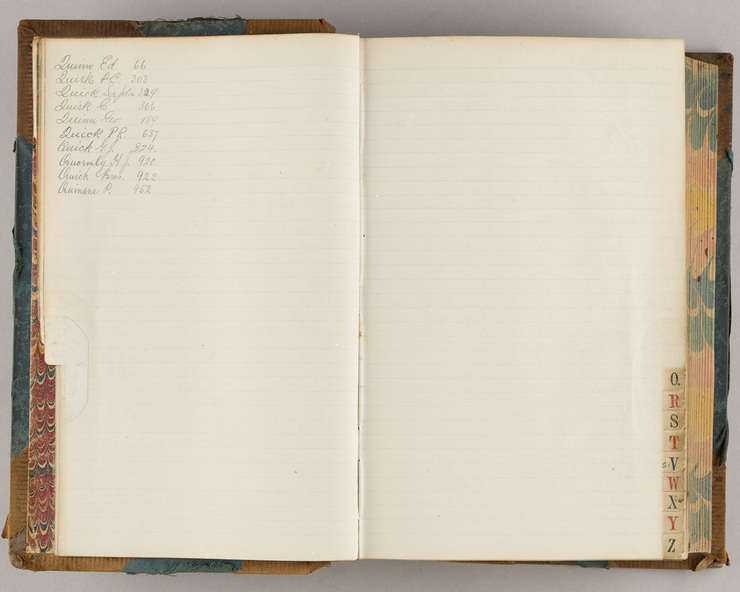 Quinn Ed 66
Quirk P.C. 303
Quick John 329
Quirk C. 366
Quinn Geo 159
Quick P.R. 637
Quick G.J. 824.
H. 920
Quick Bros. 922
Quinane P. 952
Q.
R
S
T
V
W
X
Y
Z